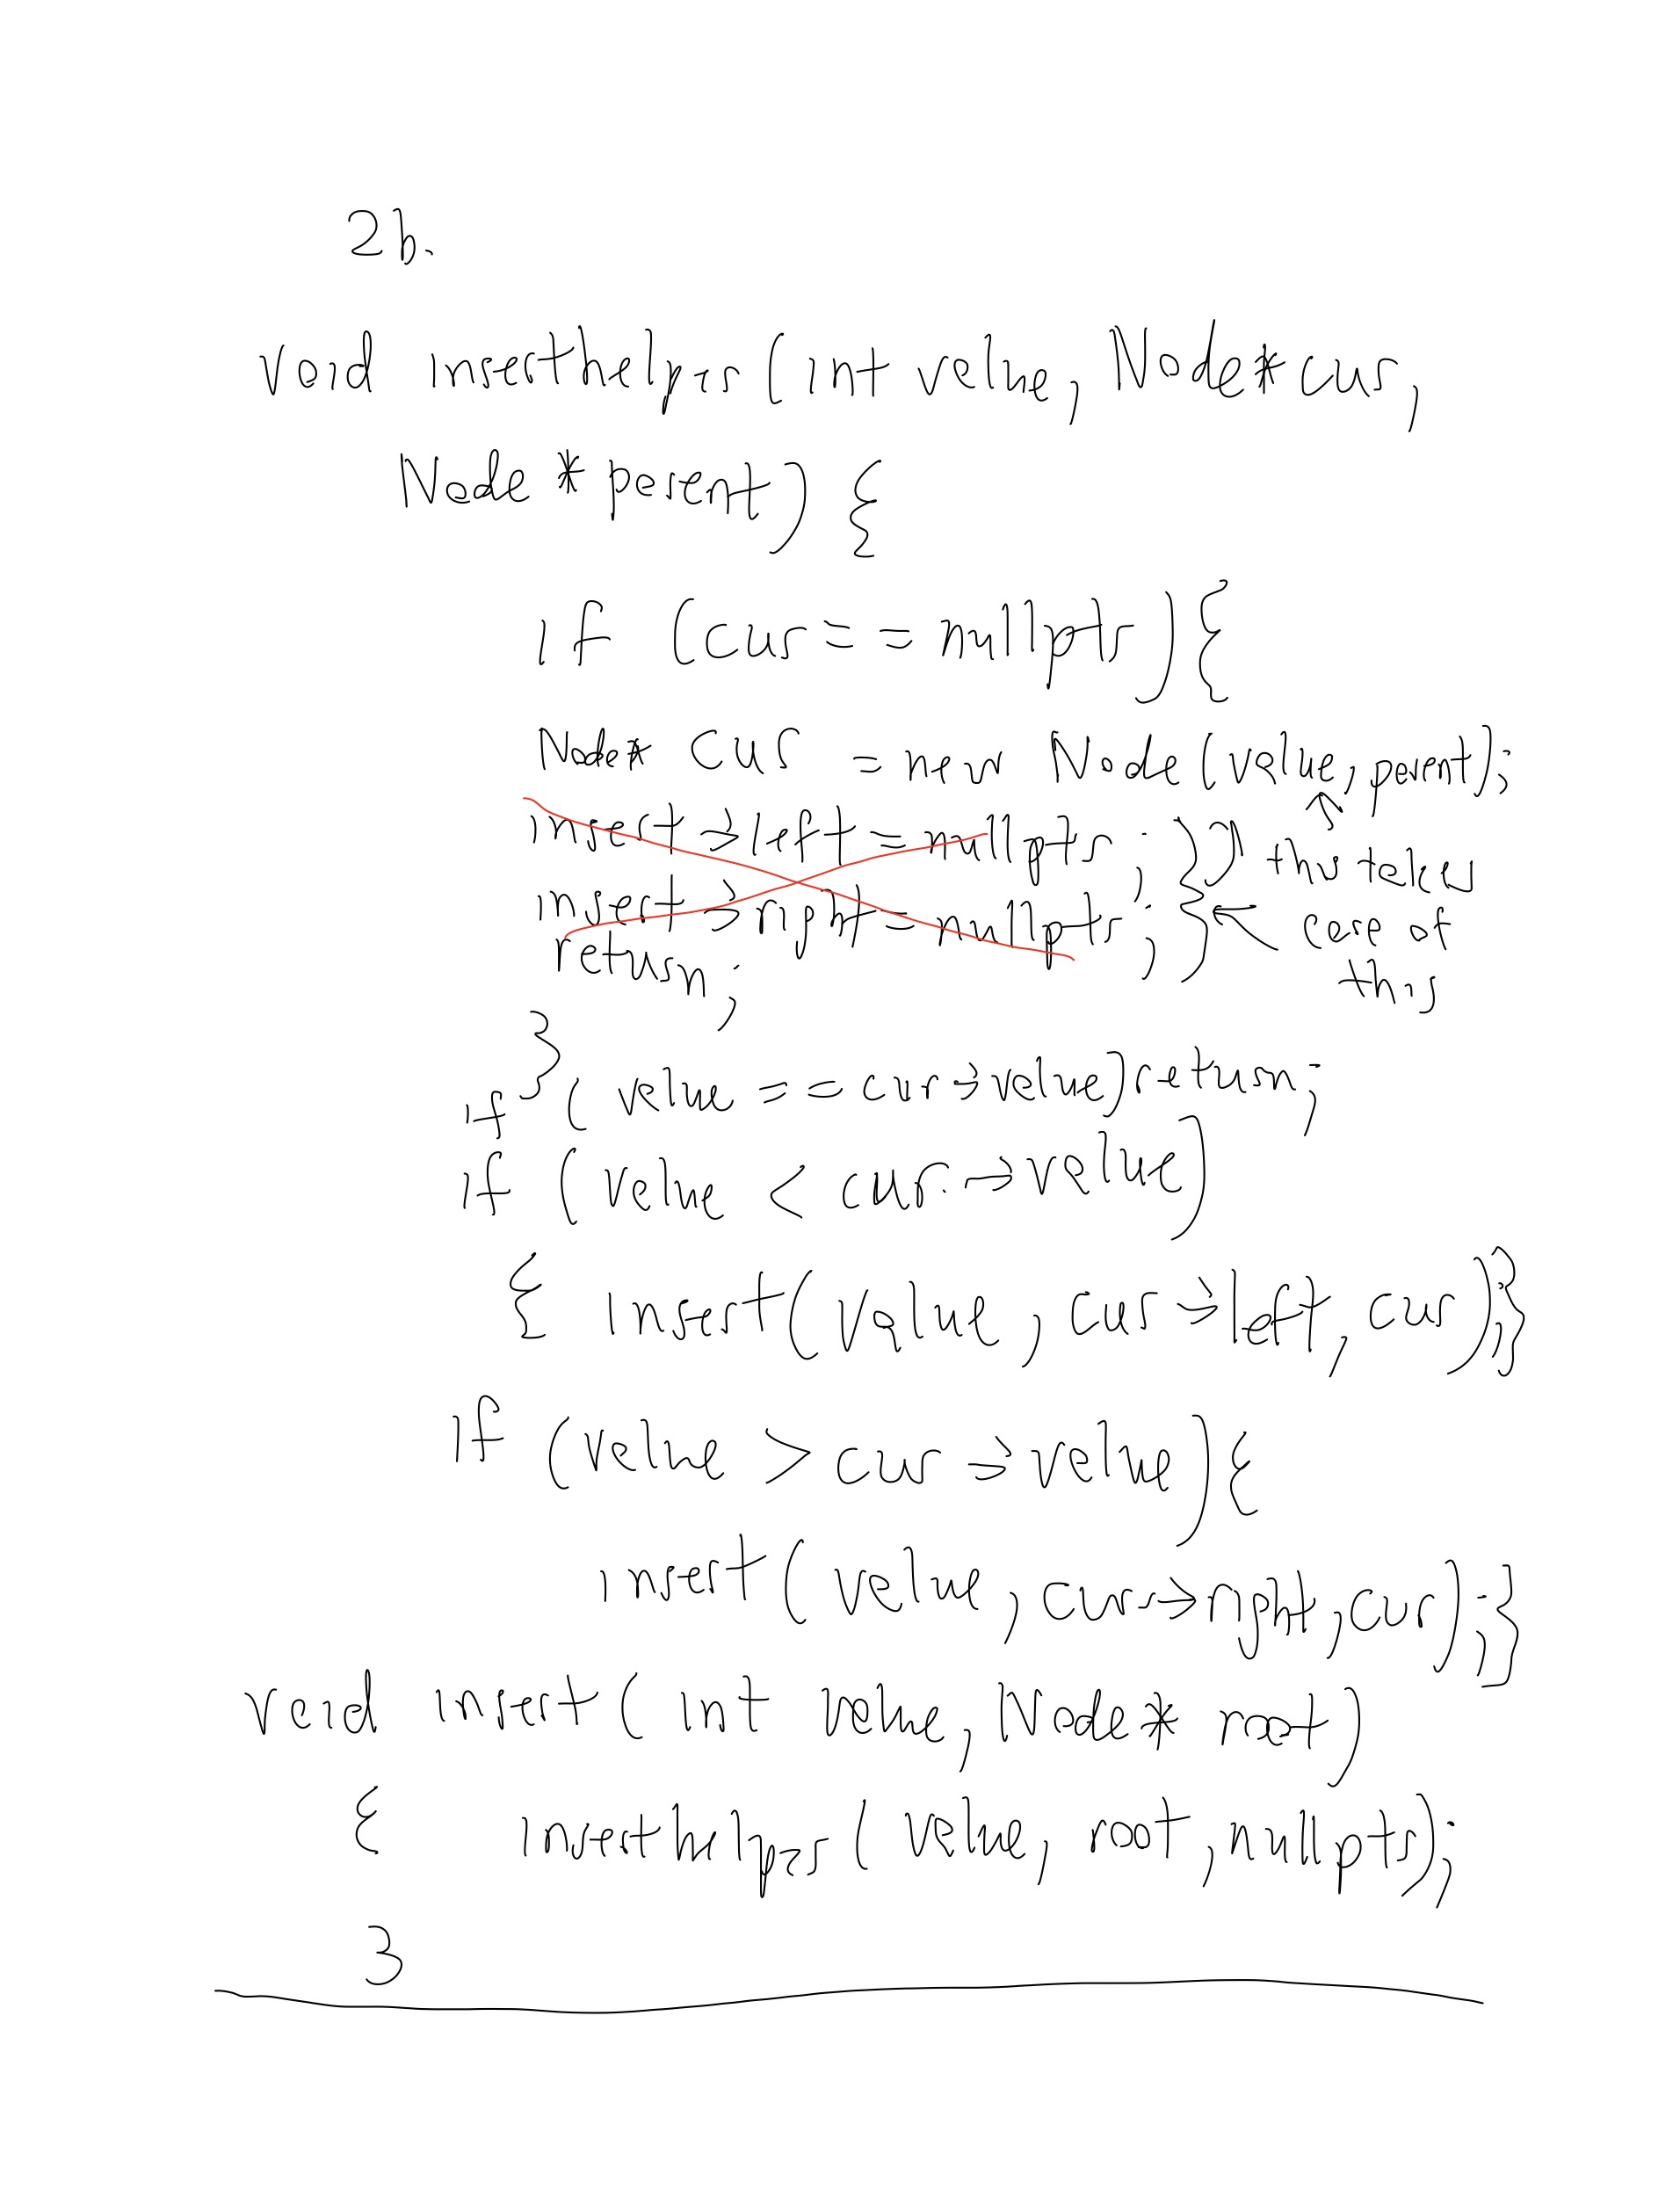 2b.
void inserthelper (int value, Node* cur,
Node * parent) {
if (cur == nullptr) {
Node* cur = new Node (value, parent);
insert->left = nullptr;
insert->right = nullptr; }} ← this takes care of this
return;
}
if (value == cur->value) return;
if (value < cur->value)
{ insert(value, cur->left, cur);}
if (value > cur->value) {
insert(value, cur->right, cur);}
void insert (int value, Node* root)
{ inserthelper (value, root, nullptr);
}